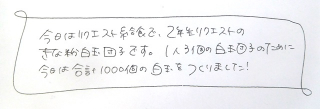 今日はリクエスト給食で、2年生リクエストの
きな粉白玉団子です。1人3個の白玉団子のために
今日は合計1000個の白玉をつくりました!